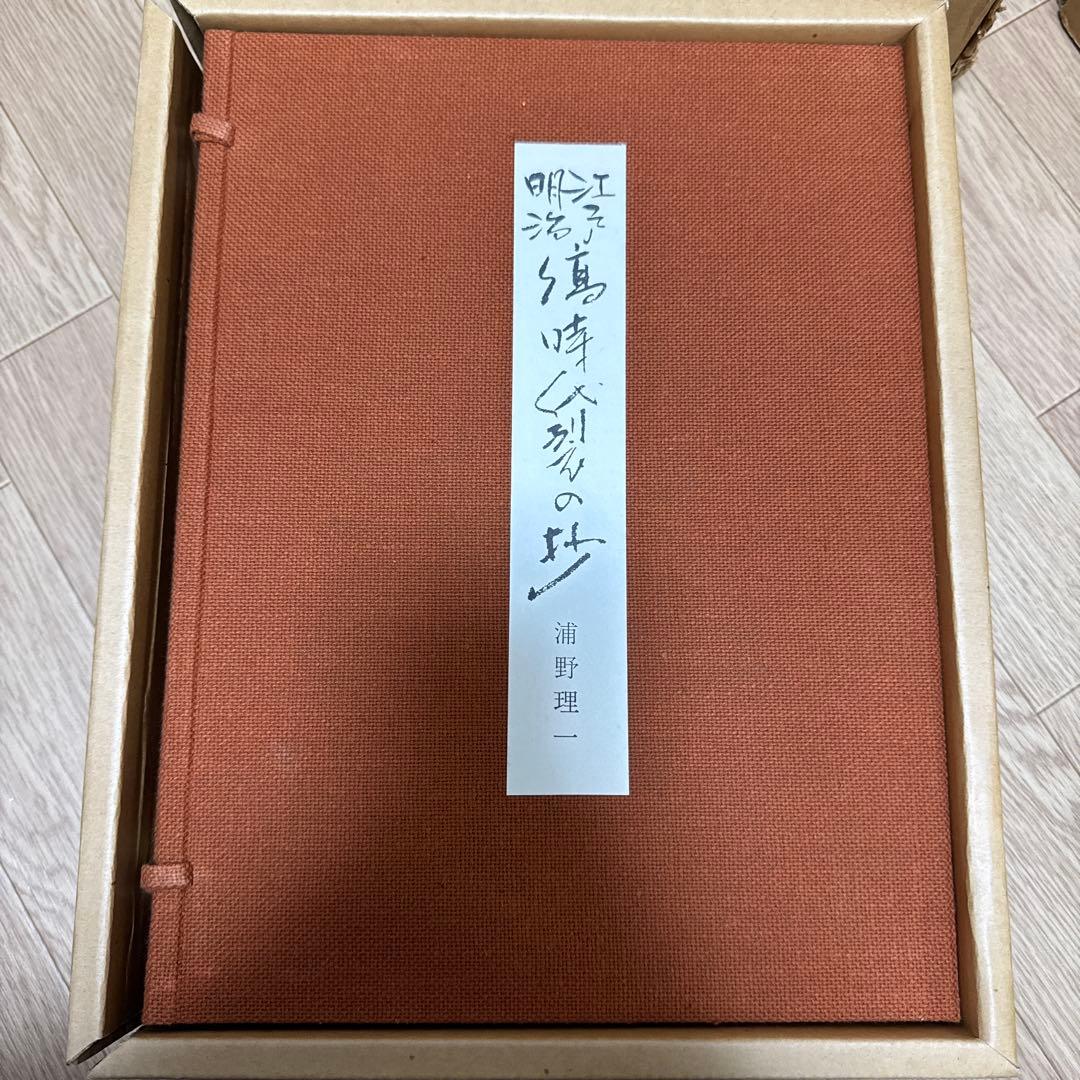 江戸
明治
縞時代裂の抄
浦野理一